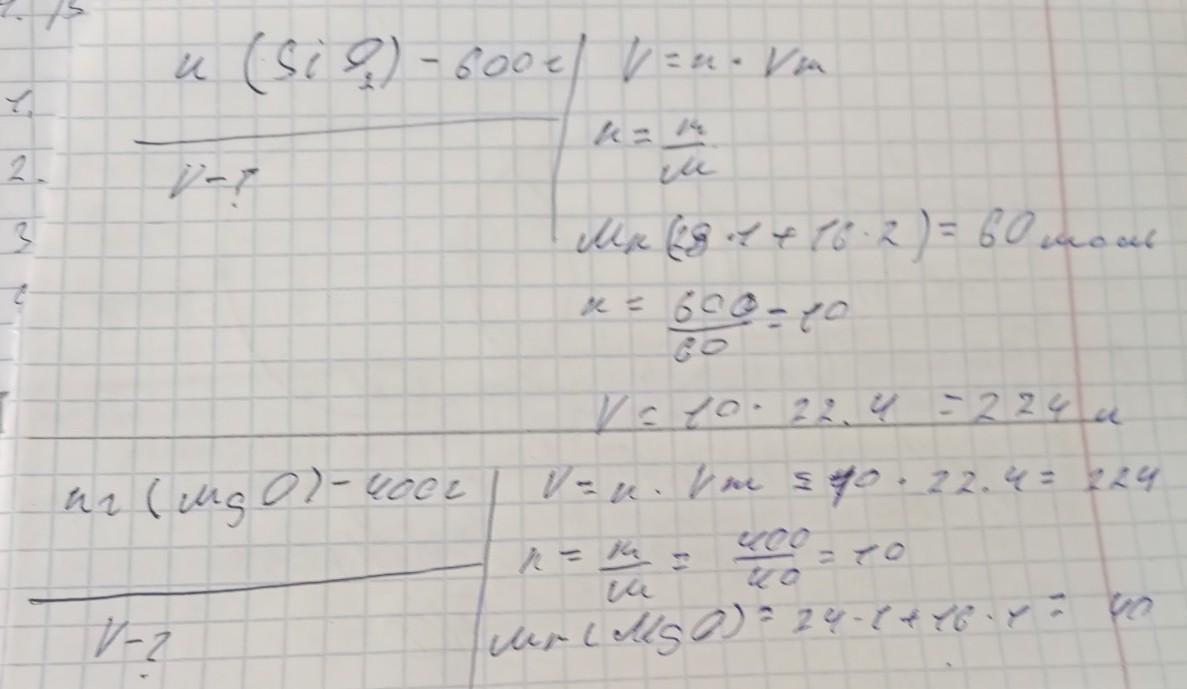 m (SiO₂) - 600г
V = n · Vm
1.
n = m/M
2.
V - ?
3
Mr (28·1 + 16·2) = 60 моль
n = 600/60 = 10
V = 10 · 22.4 = 224 л
mг (MgO) - 400г
V = n · Vm = 10 · 22.4 = 224
n = m/M = 400/40 = 10
V - ?
Mr (MgO) = 24·1 + 16·1 = 40